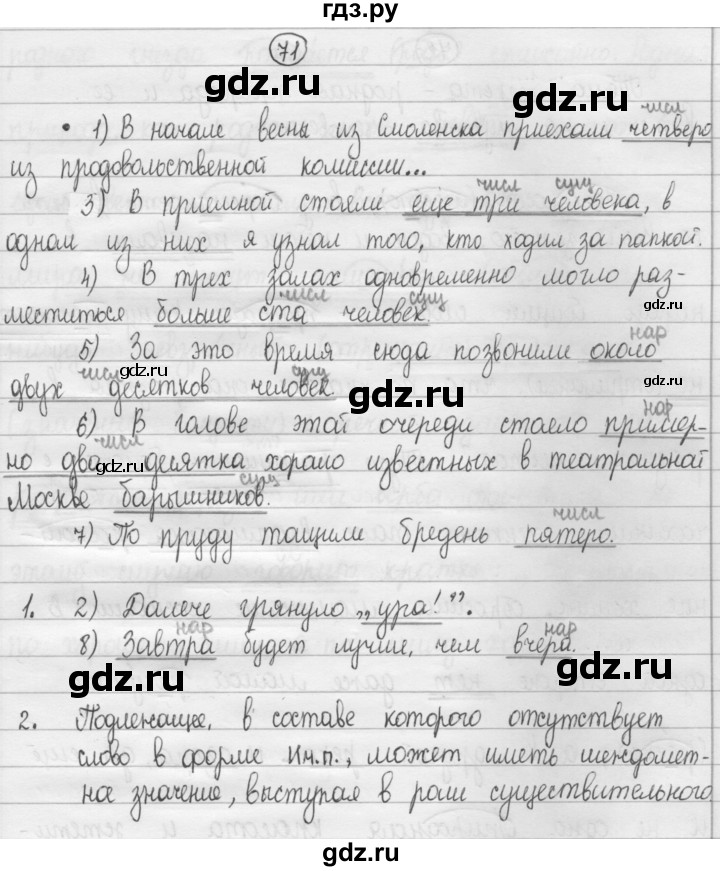 гдз.ру
71
gdz.ru gdz.ru
числ
• 1) В начале весны из Смоленска приехали четверо
из продовольственной комиссии...
числ сущ
3) В приемной стояли еще три человека, в
одном из них я узнал того, кто ходил за папкой.
4) В трех залах одновременно могло раз-
gdz.ru gdz.ru
числ сущ
меститься больше ста человек
нар
5) За это время сюда позвонили около
числ сущ
двух десятков человек
gdz.ru gdz.ru
нар
6) В голове этой очереди стояло пример-
числ
но два десятка хорошо известных в театральной
gdz.ru gdz.ru
сущ
Москве барышников.
числ
7) По пруду тащили бредень пятеро.
1. 2) Далече грянуло „ура!”.
gdz.ru gdz.ru
нар нар
8) Завтра будет лучше, чем вчера.
gdz.ru gdz.ru
2. Подлежащее, в составе которого отсутствует
слово в форме Им.п., может иметь междомет-
gdz.ru gdz.ru
ное значение, выступая в роли существительного
gdz.ru